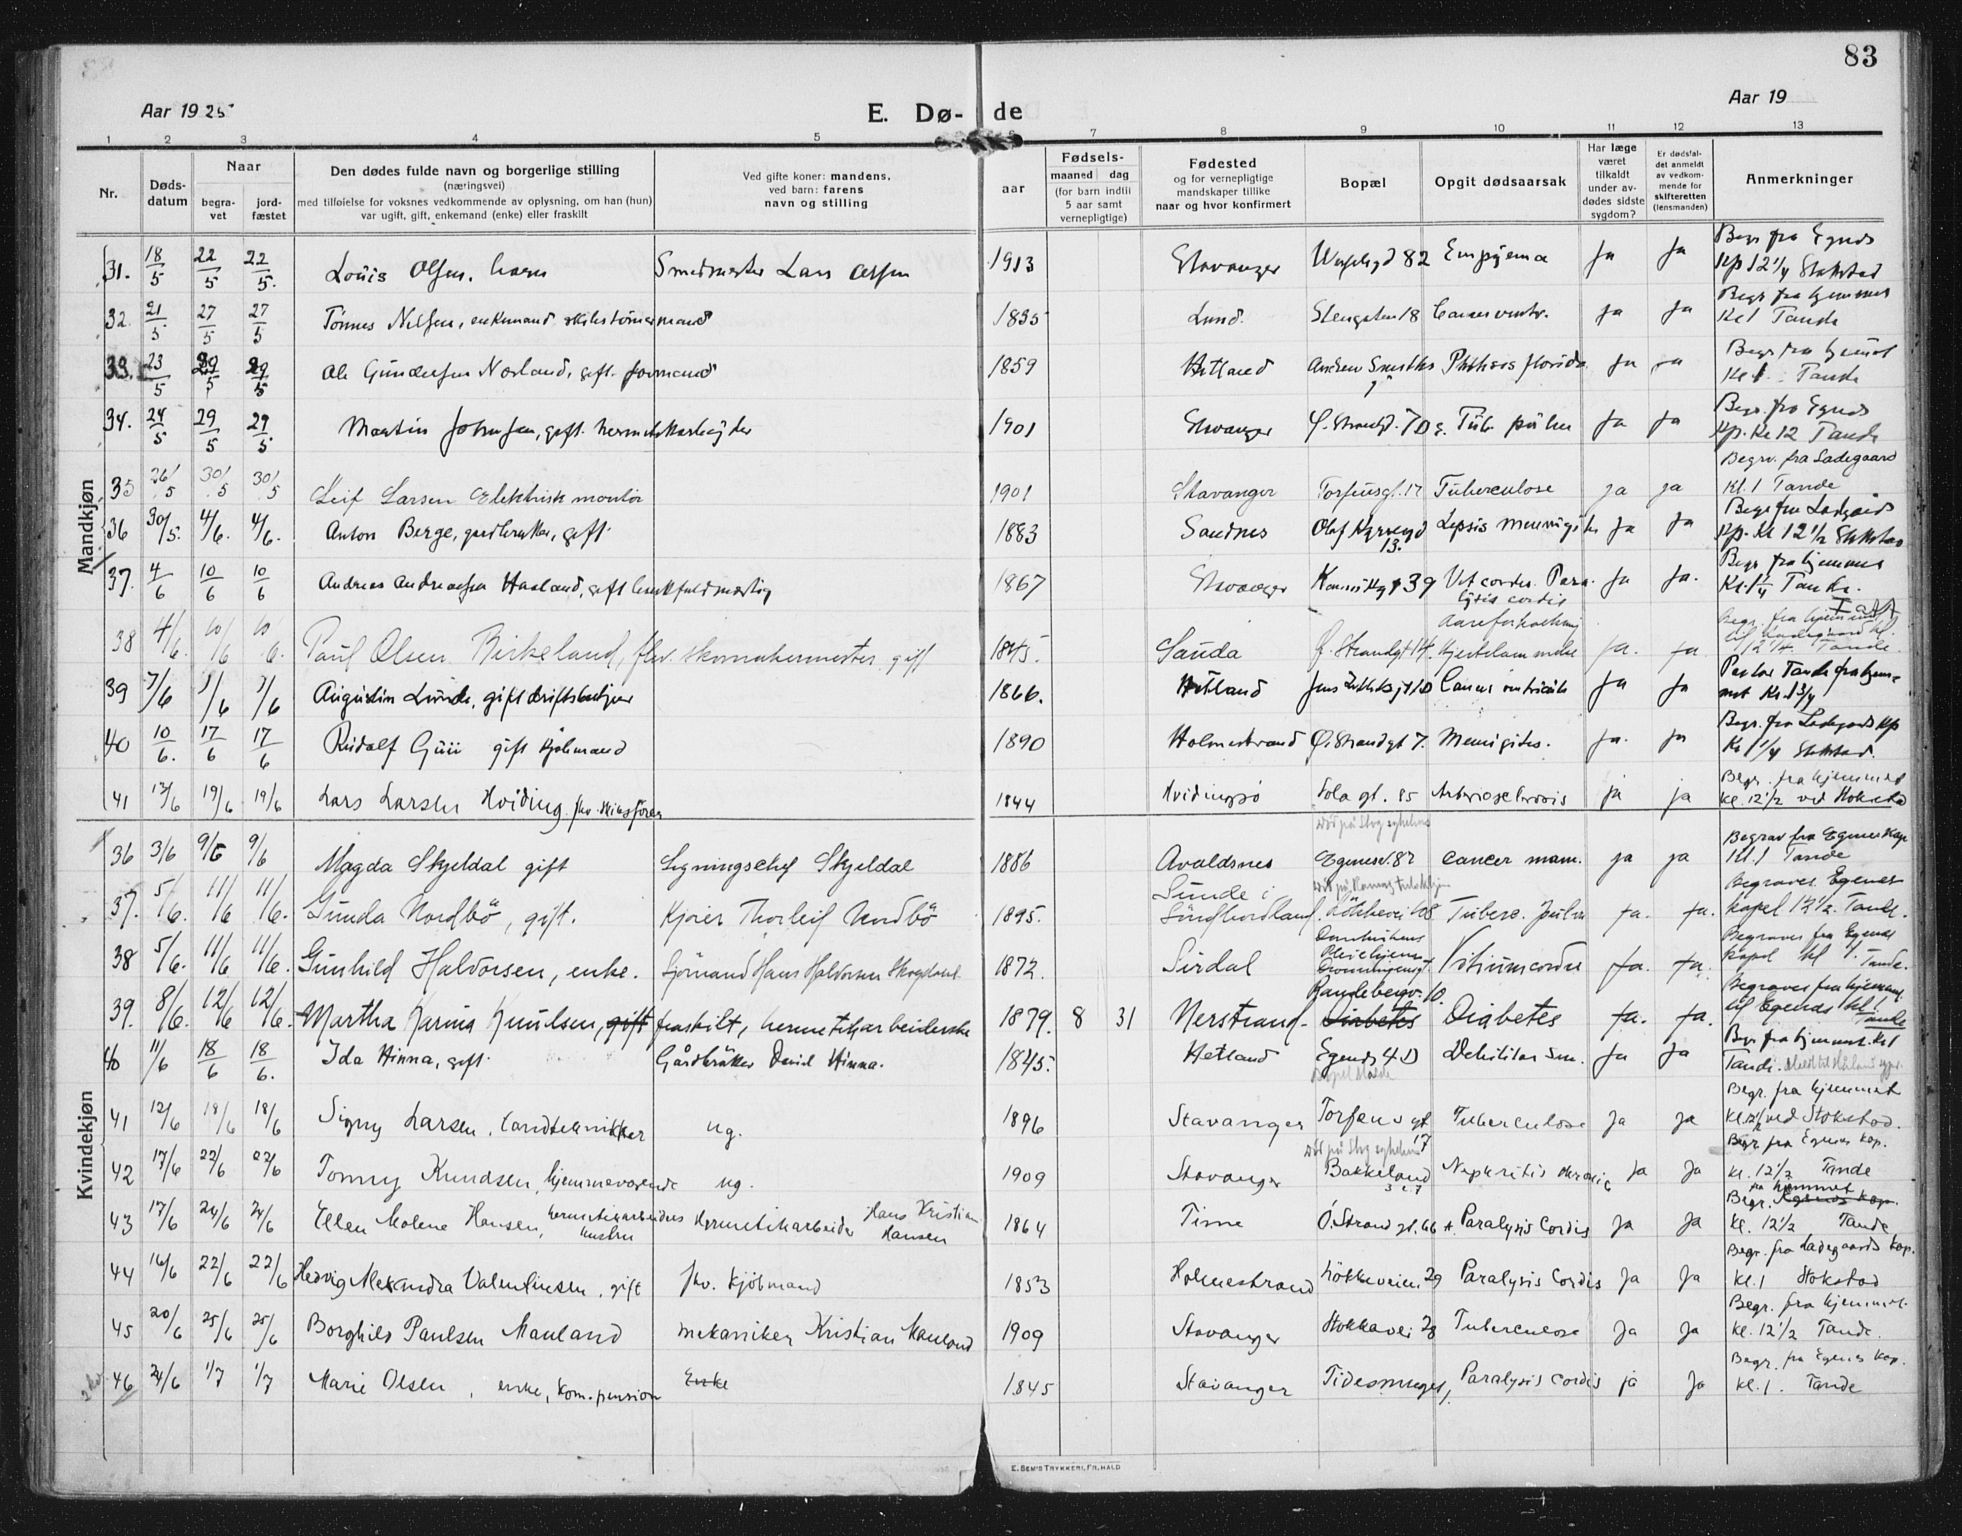 83
Aar 1925
E. Dø- de
Aar 19
1 2 3 4 5 6 7 8 9 10 11 12 13
Nr.
Døds-datum
Naar
begra-vet
jord-fæstet
Den dødes fulde navn og borgerlige stilling
(næringsvei)
med tilføielse for voksnes vedkommende av oplysning, om han (hun)
var ugift, gift, enkemand (enke) eller fraskilt
Ved gifte koner: mandens,
ved barn: farens
navn og stilling
aar
Fødsels-
maaned dag
(for barn indtil
5 aar samt
vernepligtige)
Fødested
og for vernepligtige
mandskaper tillike
naar og hvor konfirmert
Bopæl
Opgit dødsaarsak
Har læge
været
tilkaldt
under av-
dødes sidste
sygdom?
Er dødsfal-
det anmeldt
av vedkom-
mende for
skifteretten
(lensmanden)
Anmerkninger
Mandkjøn
31. 18/5 22/5 22/5. Louis Olsen, Smedmester Lars Olsen 1913 Stavanger 82 Empyema Ja Ja Begr. fra Egnes Kp 12 1/4 Stokstad
32. 21/5 27/5 27/5 Tønnes Nilsen, enkemand 1835 Lund. Stengaten 18 Cancer ventr. Ja Ja Begr. fra hjemmet Kl 1 Tande
33. 23/5 29/5 29/5 Ole Gundersen Norland, gift. formand 1859 Hetland Phthisis florida Ja Ja Begr. fra hjemmet Kl 1. Tande
34. 24/5 29/5 29/5 Martin Johnsen, gift. 1901 Stavanger Ø. Strandgt. 70 Tub. pulm Ja Ja Begr. fra Egnes Kp. Kl 12 Tande
35 26/5 30/5 30/5 Leif Larsen Elektrisk montør 1901 Stavanger Torfeusgt. 17 Tuberculose ja ja Begrv. fra Ladegaard Kl. 1 Tande
36 30/5. 4/6. 4/6. Anton Berge, gift. 1883 Sandnes Olaf Kyrresgd 13. Ja Ja Begr. fra Kp. Kl 12 1/2 Stokstad
37. 4/6 10/6 10/6 Andreas Andreassen Haaland, gift 1867 Stavanger 39 Vit cordis. Paralysis cordis Ja Ja. Begr. fra hjemmet Kl. 1 1/4 Tande.
38 4/6. 10/6 10/6. Paul Olsen Birkeland, fhv. skomakermester, gift 1845. Sauda Ø. Strandgt 14. Aareforkalkning Ja. Ja Begr. fra hjemmet til Ladegaard kl. 12 1/4. Tande.
39 7/6 Augustin Lunde, gift 1866. Hetland Cancer ventriculi Ja Ja Pastor Tande fra hjemmet Kl. 1 3/4
40 10/6. 17/6 17/6 Rudolf Guii gift kjøbmand 1890 Holmestrand Ø. Strandgt 7. Meningites. Ja. Ja Begr. fra Ladegaards Kp Kl 1 1/4 Stokstad.
41 19/6 19/6 Lars Larsen Hviding, fhv. 1844 Hvidingsø Sola gt. 85 Arteriosclerosis ja ja Begr. fra hjemmet Kl. 12 1/2 ved Stokstad
Kvindekjøn
36 3/6 9/6 9/6 Magda Skjeldal gift Ligningschef Skjeldal 1886 Avaldsnes Egenesv. 82 cancer mam. ja ja Begrav fra Egenes Kap Kl. 1 Tande
37. 5/6. 11/6 11/6. Gunda Nordbö, gift. Kjører Thorleif Nordbö 1895. Sunde i Söndhordland. Tuberc. pulm Ja. Ja. Begraves Egenes kapel 12 1/2. Tande.
38 5/6. 11/6 11/6. Gunhild Halvorsen, enke. Sjömand Hans Halvorsen 1872. Sirdal Vitium cordis Ja. Ja. Begraves fra Egenes kapel kl 1. Tande.
39. 8/6. 12/6 12/6. Martha Karina Knudsen, gift fraskilt, hermetikarbeiderske 1879. 8 31 Nerstrand Randebergv. 10. Diabetes Diabetes Ja. Ja. Begraves fra hjemmet til Egenes kl. 1 Tande
40 11/6 18/6 18/6. Ida Hinna, gift. Gårdbruker David Hinna. 1845. Hetland Debilitas sen. Ja Ja Begr. fra hjemmet. Kl 1 Tande.
41 12/6 18/6 18/6 Signy Larsen, tandtekniker ug. 1896 Stavanger Torfeus gt 17 Tuberculose Ja Ja Begr. fra hjemmet Kl. 12 1/2 ved Stokstad.
42 17/6 22/6 22/6 Tonny Knudsen, hjemmeværende ug. 1909 Stavanger Bakkeland Nephritis chronic Ja Ja Begr. fra Egenes Kap. Kl. 12 1/2 Tande
43 17/6 24/6 24/6 Ellen Malene Hansen, hermetikarbeiders hustru Hermetikarbeider Hans Kristian Hansen 1864 Time Ö. Strand gt. 66 Paralysis Cordis Ja Ja Begr. fra hjemmet Egenes kap. Kl. 12 1/2 Tande
44 16/6 22/6 22/6 Hedvig Alexandra Valentinsen, gift fhv. kjöbmand 1853 Holmestrand Lökkeveien 29 Paralysis Cordis Ja Ja Begr. fra Ladegaards Kap. Kl. 1 Stokstad
45 20/6 25/6 25/6 Borghild Paulsen Mauland mekaniker Kristian Mauland 1909 Stavanger Stokkavei 28 Tuberculose Ja Ja Begr. fra hjemmet. Kl. 12 1/2 Tande.
46 24/6 1/7 1/7 Marie Olsen, enke, kom. pension Enke 1845 Stavanger Paralysis Cordis ja Ja Begr. fra Egenes Kap. Kl. 1. Tande
E. SEM'S TRYKKERI, FR.HALD